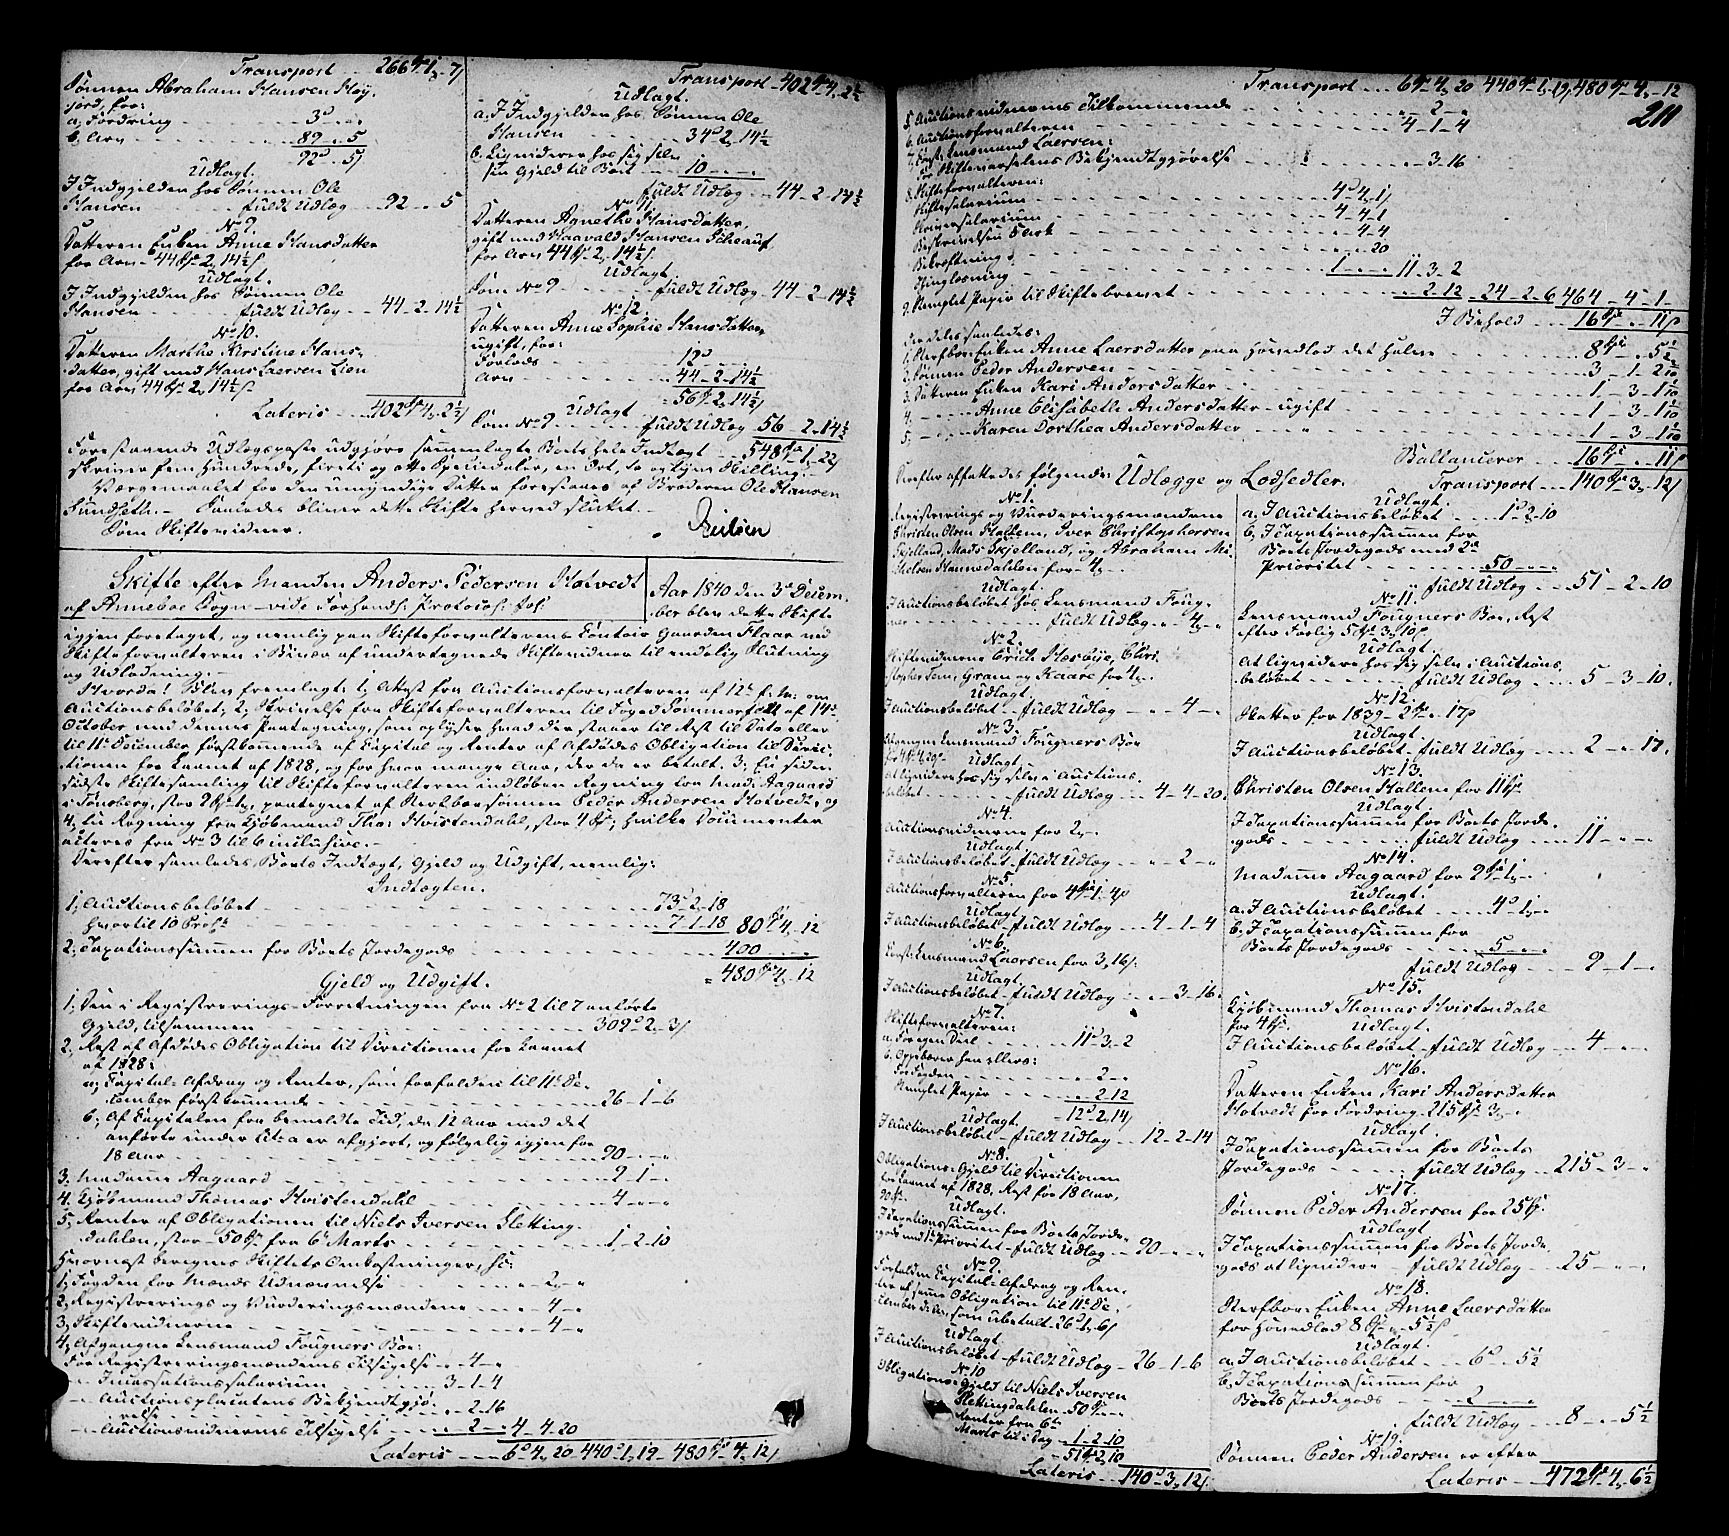 Transport - 266 - 1 - 7
Sønnen Abraham Hansen Høy-
jord, for:
a, Fordring 3
b, Arv 89 - 5
92 - 5
Udlagt.
I Indgjelden hos Sønnen Ole
Hansen fuldt Udlæg - 92 - 5
No 9.
Datteren Enken Anne Hansdatter
for Arv 44 - 2, 14½
Udlagt.
I Indgjelden hos Sønnen Ole
Hansen fuldt Udlæg - 44 - 2 - 14½
No 10.
Datteren Marthe Kirstine Hans-
datter, gift med Hans Laersen Lien
for Arv 44 - 2, 14½
Lateris - 402 - 4, 2½
Transport - 402 - 4, 2½
Udlagt.
a, I Indgjelden hos Sønnen Ole
Hansen 34 - 2, 14½
b, Ligviderer hos sig selv
sin Gjeld til Boet 10
fuldt Udlæg - 44 - 2 - 14½
No 11.
Datteren Agnethe Hansdatter,
gift med Haavald Hansen
for Arv 44 - 2, 14½
Udlagt
Som No 9 fuldt Udlæg - 44 - 2 - 14½
No 12.
Datteren Anne Sophie Hansdatter,
ugift, for:
Forlods 12
Arv 44 - 2 - 14½
56 - 2, 14½
Udlagt
Som No 9 fuldt Udlæg 56 - 2 - 14½
Forestaaende Udlægsposte udgjøre sammenlagte Boets hele Indtægt 548 - 1 - 22
skriver fem hundrede, firti og otte Speciedaler, en Ort, to og tyve Skilling.
Værgemaalet for den umyndige Datter forestaaes af Broderen Ole Hansen
Sundseth. - Saaledes bliver dette Skifte herved sluttet.
Som Skiftevidner.
Skifte efter Manden Anders Pedersen Hotvedt
af Anneboe Sogn - vide Forhands: Protocol fol:
Aar 1840 den 3d Decem-
ber blev dette Skifte
igjen foretaget, og nemlig paa Skifteforvalterens Contoir Gaarden Flaar ved
Skifteforvalteren i Biværelse af undertegnede Skiftevidner til endelig Slutning
og Udlodning:-
Hvorda! Blev fremlagt: 1, Attest fra Auctionsforvalteren af 12te f. M: om
Auctionsbeløbet; 2, Skrivelse fra Skifteforvalteren til Foged Sommerfelt af 14de
October med dennes Paategning, som oplyser hvad der staaer til Rest til Dato eller
til 11te December førstkommende af Capital og Renter af Afdødes Obligation til Direc-
tionen for Laanet af 1828, og for hvor mange Aar, der da er betalt. 3, En siden
sidste Skiftesamling til Skifteforvalteren indløben Regning fra Mad: Aagaard
i Tønsberg, stor 9 - 1, paategnet af Sterfboesønnen Peder Andersen Hotvedt, og
4, en Regning fra Kjøbmand Tho: Hvistendahl, stor 4; hvilke Documenter
acteres fra No 3 til 6 inclusive. -
Derefter samledes Boets Indtægt, Gjeld og Udgift, nemlig:
Indtægten.
1, Auctionsbeløbet 73 - 2 - 18
hvortil 10 Prosent 7 - 1 - 18 80 - 4, 12
2, Taxationssummen for Boets Jordegods 400
480 - 4, 12
Gjeld og Udgift.
1, Den i Registrerings-Forretningen fra No 2 til 7 anførte
Gjeld, tilsammen 309 - 2 - 3
2, Rest af Afdødes Obligation til Directionen for Laanet
af 1828:
a, Capital-Afdrag og Renter, som forfalden til 11te De-
cember førstkommende 26 - 1 - 6
b, Af Capitalen fra bemeldte Tid, da 12 Aar med det
anførte under Lit: a er afgjort, og følgelig igjen for
18 Aar 90
3, Madame Aagaard 9 - 1
4, Kjøbmand Thomas Hvistendahl 4
5, Renter af Obligationen til Niels Iversen Sletting-
dahlen, stor 50 fra 6te Marts 1 - 2 - 10
Hvornæst beregnes Skiftets Omkostninger, sc:
1, Fogden for Mænds Udnævnelse 2
2, Registrerings og Vurderingsmændene 4
3, Skiftevidnerne 4
4, Afgangne Lensmand Fougners Boe:
For Registreringsmændenes Tilsigelse 4
- Incassationssalarium 3 - 1 - 4
- Auctionsplacatens Bekjendtgjø-
relse 2 - 16
- Auctionsvidnernes Tilsigelse 2 - 4 - 4 - 20
Lateris 6 - 4, 20 - 440 - 1, 19 - 480 - 4, 12
Transport 6 - 4, 20 440 - 1, 19, 480 - 4, 12
211
5, Auctionsvidnernes Tilkommende 2
6, Auctionsforvalteren 4 - 1 - 4
7, Const: Lensmand Laersen:
for Skifteværelsens Bekjendtgjørelse 3 - 16
8, Skifteforvalteren:
Skiftesalarium 4 - 4, 1
4 - 4 - 1
4 - 4
Bekræftning 20
Thinglæsning 1 11 - 3 - 2
9, Stemplet Papir til Skiftebrevet 2 - 12 - 24 - 2 - 6 464 - 4 - 1
I Behold 16 - 11
der deles saaledes:
1, Sterfboe-Enken Anne Laersdatter paa Hovedlod det halve 8 - 5½
2, Sønnen Peder Andersen 3 - 1 - 2
3, Datteren Enken Kari Andersdatter 1 - 3 - 1
4, Anne Elisabeth Andersdatter - ugift 1 - 3 - 1
5, Karen Dorthea Andersdatter 1 - 3 - 1
Ballancerer 16 - 11
Derefter affattedes følgende: Udlægge og Lodsedler.
No 1.
Registrerings og Vurderingsmændene
Christen Olsen Hallem, Iver Christophersen
Skjelland, Mads Skjelland, og Abraham Mi-
chelsen Hannedahlen for - 4
Udlagt.
I Auctionsbeløbet hos Lensmand Foug-
ner fuldt Udlæg - 4
No 2.
Skiftevidnerne Erich Hæsbye, Chri-
stopher Sem, Gram og Kaare for 4
Udlagt
I Auctionsbeløbet - fuldt Udlæg - 4
No 3.
Afgangne Lensmand Fougners Boe
for 4, 4, 20
Udlagt,
at liqvidere hos sig selv, i Auctions-
beløbet fuldt Udlæg - 4 - 4 - 20
No 4.
Auctionsvidnerne for 2
Udlagt.
I Auctionsbeløbet - fuldt Udlæg - 2
No 5
Auctionsforvalteren for 4 - 1 - 4
Udlagt.
I Auctionsbeløbet - fuldt Udlæg - 4 - 1 - 4
No 6.
Const: Lensmand Laersen for 3, 16
Udlagt.
I Auctionsbeløbet - fuldt Udlæg - 3 - 16
No 7.
Skifteforvalteren:
a, For egen Deel 11 - 3 - 2
b, Oppebærer han ellers:
For Fogden 2
Stemplet Papir 2 12
12 - 2, 14
Udlagt.
I Auctionsbeløbet - fuldt Udlæg - 12 - 2 - 14
No 8.
Obligations-Gjeld til Directionen
for Laanet af 1828, Rest for 18 Aar,
90
Udlagt.
I Taxationssummen for Boets Jorde-
gods med 1ste Prioritet - fuldt Udlæg - 90
No 9.
Forfalden Capital-Afdrag og Ren-
ter af samme Obligation til 11te De-
cember d. A., som ubetalt - 26, 1, 6
Udlagt
I Auctionsbeløbet - fuldt Udlæg - 26 - 1 - 6
No 10
Obligations-Gjeld til Niels Iversen
Slettingdahlen - 50
Renter fra 6te
Marts til i Dag 1 - 2 - 10
51 - 2, 10
Lateris 140 - 3, 12
Transport 140 - 3, 12
Udlagt
a, I Auctionsbeløbet 1 - 2 - 10
b, I Taxationssummen for
Boets Jordegods med 2den
Prioritet 50
fuldt Udlæg 51 - 2 - 10
No 11.
Lensmand Fougners Boe, Rest
efter Forlig 5 - 3, 10
Udlagt
At liqvidere hos sig selv i Auctions-
beløbet fuldt Udlæg 5 - 3 - 10
No 12.
Skatter for 1839 - 2 - 17
Udlagt.
I Auctionsbeløbet - fuldt Udlæg 2 - 17
No 13.
Christen Olsen Hallem for 11
Udlagt
I Taxationssummen for Boets Jorde-
gods fuldt Udlæg 11
No 14.
Madame Aagaard for 9 - 1
Udlagt.
a, I Auctionsbeløbet 4 - 1
b, I Taxationssummen for
Boets Jordegods 5
fuldt Udlæg 9 - 1
No 15.
Kjøbmand Thomas Hvistendahl
for 4 Udlagt.
I Auctionsbeløbet - fuldt Udlæg 4
No 16.
Datteren Enken Kari Andersdatter
Hotvedt for Fordring 215 - 3
Udlagt.
I Taxationssummen for Boets
Jordegods fuldt Udlæg 215 - 3
No 17.
Sønnen Peder Andersen for 25
Udlagt
I Taxationssummen for Boets Jorde-
gods at liqvidere - fuldt Udlæg 25
No 18.
Sterfboe-Enken Anne Laersdatter
for Hovedlod 8 - 5½
Udlagt.
a, I Auctionsbeløbet 6 - 5½
b, I Taxationssummen for
Boets Jordegods 2
fuldt Udlæg 8 - 5½
No 19.
Sønnen Peder Andersen er efter
Lateris 472 - 4, 6½